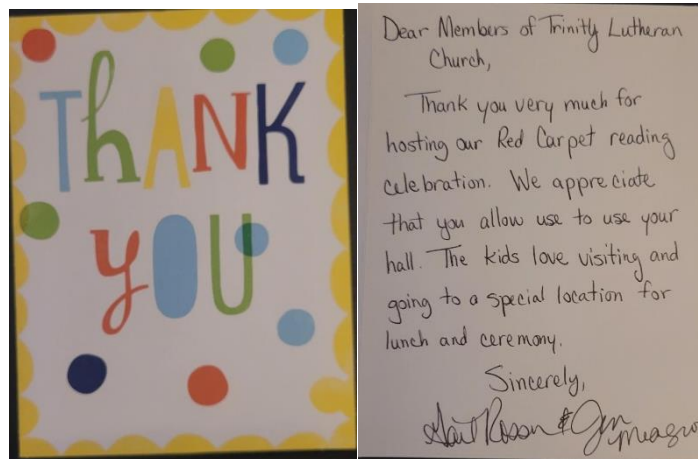 THANK
YOU
Dear Members of Trinity Lutheran
Church,
Thank you very much for
hosting our Red Carpet reading
celebration. We appreciate
that you allow use to use your
hall. The kids love visiting and
going to a special location for
lunch and ceremony.
Sincerely,
& Jen